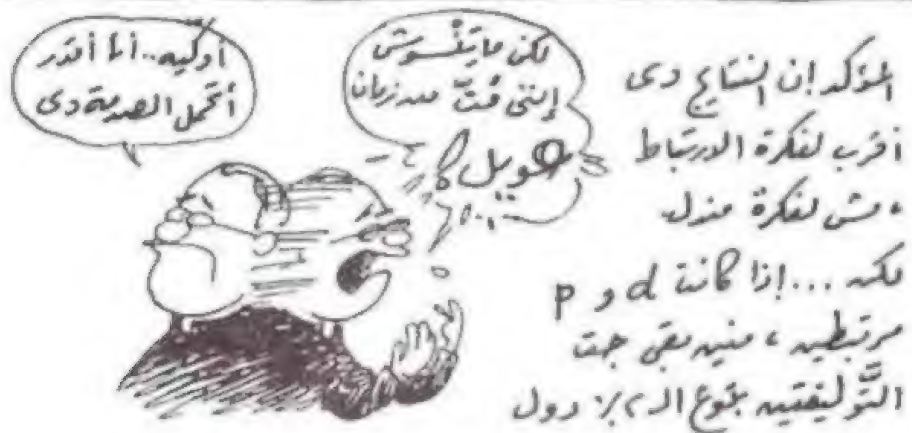 أوكيه.. أنا أقدر
أتحمل الصدمة دى
لكن ماتنْسوش
إننى مُتّ من زمان
طويل!
المؤكد إن النتايج دى
أقرب لفكرة الارتباط
، مش لفكرة مندل
لكن ... إذا كانت d و p
مرتبطين ، منين بقى جت
التَّوليفتين بتوع الـ ٢٪ دول